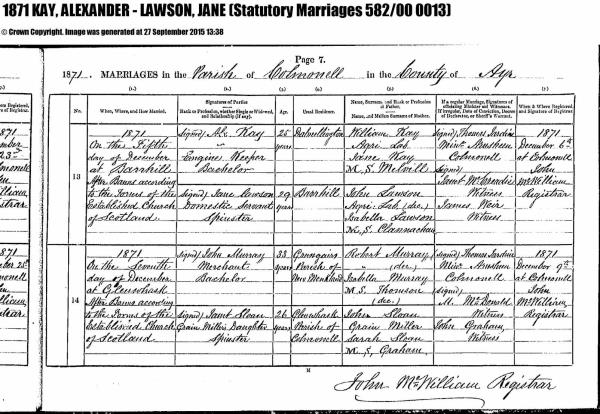 1871 KAY, ALEXANDER - LAWSON, JANE (Statutory Marriages 582/00 0013)
© Crown Copyright. Image was generated at 27 September 2015 13:38
Page 7.
1871. MARRIAGES in the Parish of Colmonell in the County of Ayr
No.
When, Where, and How Married.
Signatures of Parties
Rank or Profession, whether Single or Widowed, and Relationship (if any).
Age.
Usual Residence.
Name, Surname, and Rank or Profession of Father.
Name, and Maiden Surname of Mother.
If a regular Marriage, Signatures of officiating Minister and Witnesses.
If irregular, Date of Conviction, Decree of Declarator, or Sheriff's Warrant.
When & Where Registered and Signature of Registrar.
13
1871
On the Fifth
day of December
at Barrhill
After Banns according
to the Forms of the
Established Church
of Scotland
(signed) Alex. Kay
Engine Keeper
Bachelor
(signed) Jane Lawson
Domestic Servant
Spinster
25
years
29
years
Dalmellington
Barrhill
William Kay
Agri. Lab.
Jane Kay
M.S. Melvill
John Lawson
Agri. Lab. (dec.)
Isabella Lawson
M.S. Clannachan
(signed) Thomas Jardine
Minr.
Colmonell
(signed)
James Weir
Witness
1871
December 6th
at Colmonell
John
McWilliam
Registrar
14
1871
On the Seventh
day of December
at
After Banns according
to the Forms of the
Established Church
of Scotland
(signed) John Murray
Merchant
Bachelor
(signed) Janet Sloan
Grain Miller's Daughter
Spinster
33
years
26
years
Parish of
New Monkland
Parish of
Colmonell
Robert Murray
(dec.)
Isabella Murray
M.S. Thomson
(dec.)
John Sloan
Grain Miller
Sarah Sloan
M.S. Graham
(signed) Thomas Jardine
Minr.
Colmonell
(signed)
M. McDonald
Witness
John Graham,
Witness
1871
December 9th
at Colmonell
John
McWilliam
Registrar
John McWilliam Registrar